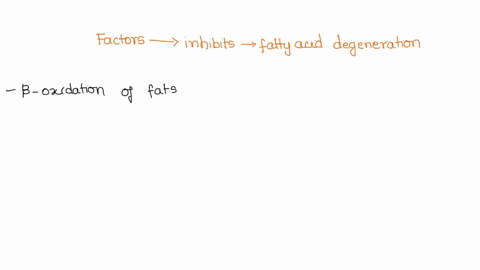 Factors → inhibits → fatty acid degeneration
- β-oxidation of fats